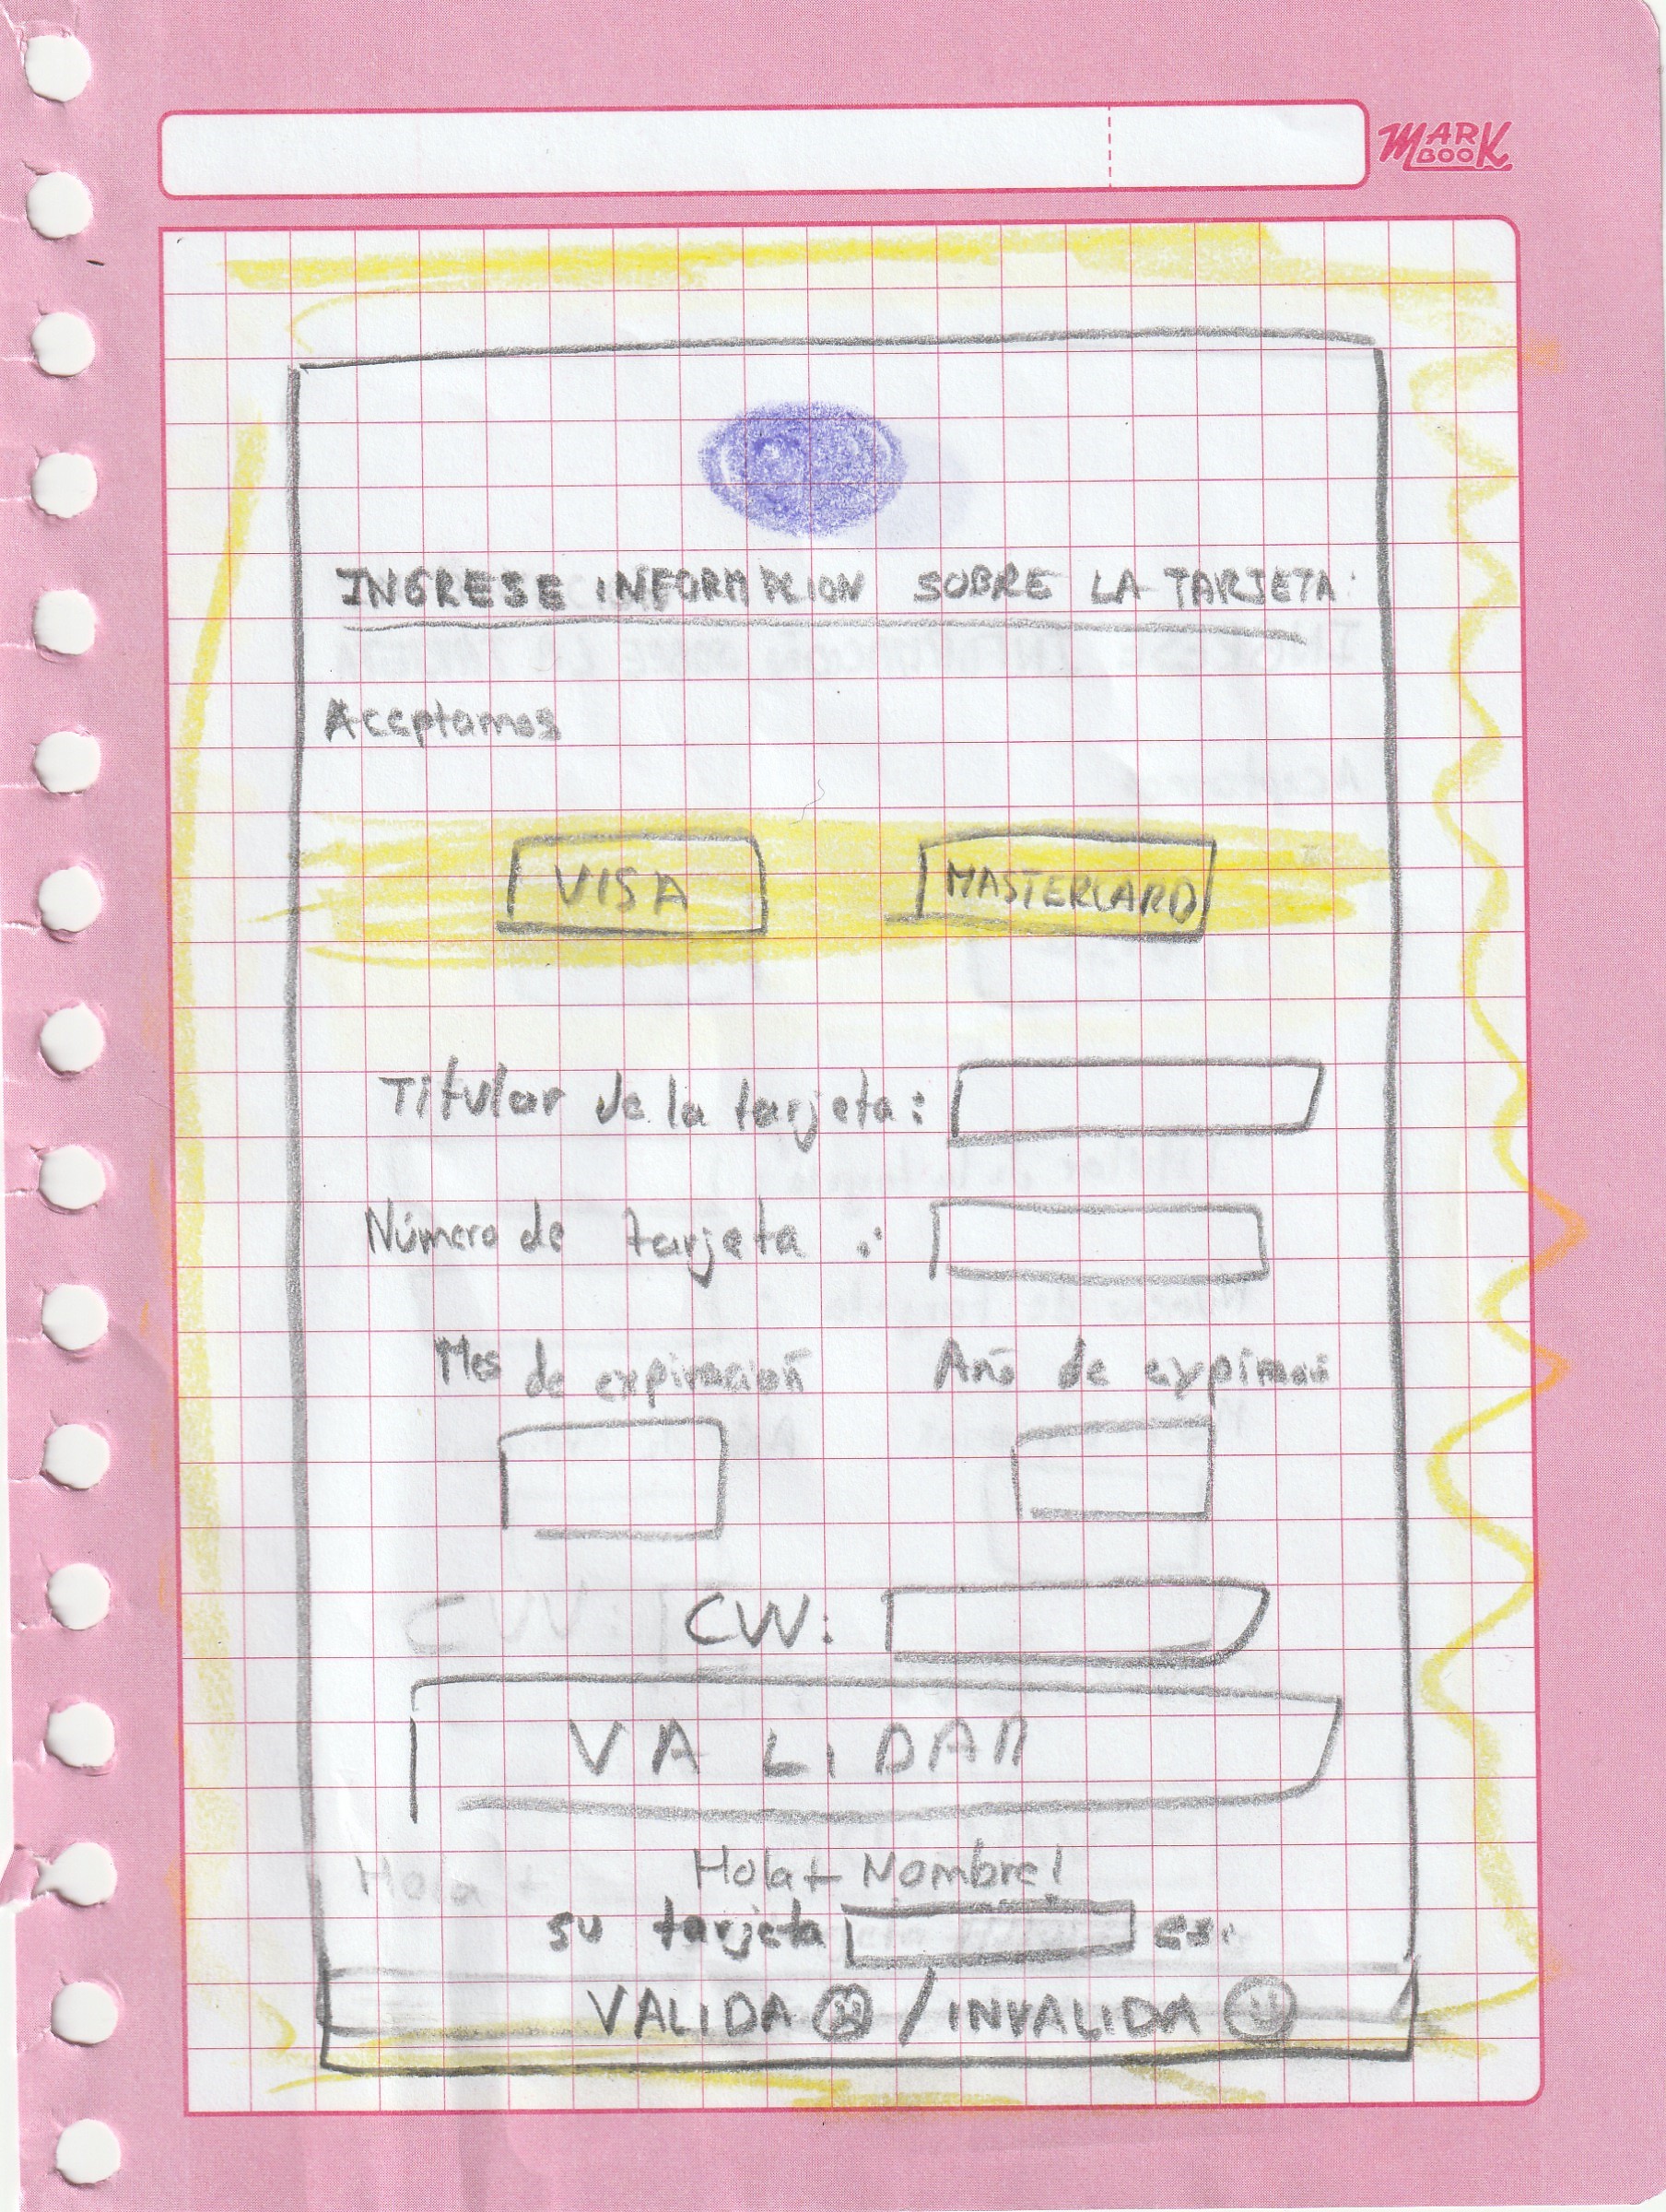 MARK
BOOK
INGRESE INFORMACION SOBRE LA TARJETA:
Aceptamos
VISA MASTERCARD
Titular de la tarjeta:
Número de tarjeta :
Mes de expiración Año de expiraci
CVV:
VALIDAR
Hola + Nombre!
su tarjeta es:
VALIDA / INVALIDA